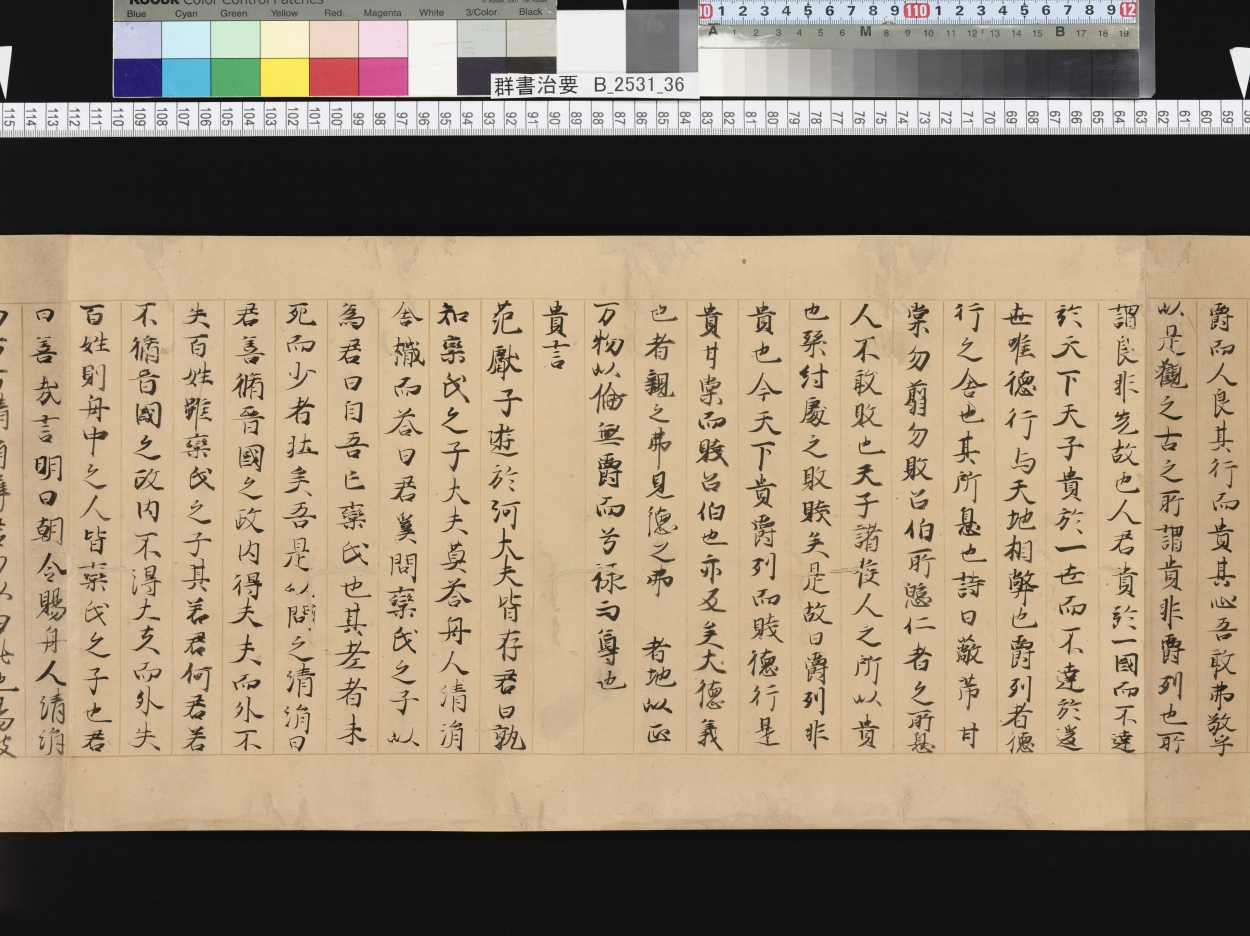 爵而人良其行而貴其心吾敢弗敬乎
以是觀之古之所謂貴非爵列也所
謂良非先故也人君貴於一國而不達
於天下天子貴於一世而不達於後
世唯德行与天地相弊也爵列者德
行之舍也其所息也詩曰蔽芾甘
棠勿翦勿敗召伯所憩仁者之所息
人不敢敗也天子諸侯人之所以貴
也桀紂處之敗賤矣是故曰爵列非
貴也今天下貴爵列而賤德行是
貴甘棠而賤召伯也亦反矣大德義
也者視之弗見德之弗 者地以正
万物以倫無爵而兮祿而尊也
貴言
范獻子遊於河大夫皆存君曰孰
知欒氏之子大夫莫荅舟人清涓
舍檝而荅曰君奚問欒氏之子以
為君曰自吾亡欒氏也其老者未
死而少者壯矣吾是以問之清涓曰
君善脩晉國之政內得大夫而外不
失百姓雖欒氏之子其若君何君若
不脩晉國之政內不得大夫而外失
百姓則舟中之人皆欒氏之子也君
曰善哉言明日朝令賜舟人清涓
群書治要 B_2531_36
KODAK Color Control Patches
Blue Cyan Green Yellow Red Magenta White 3/Color Black